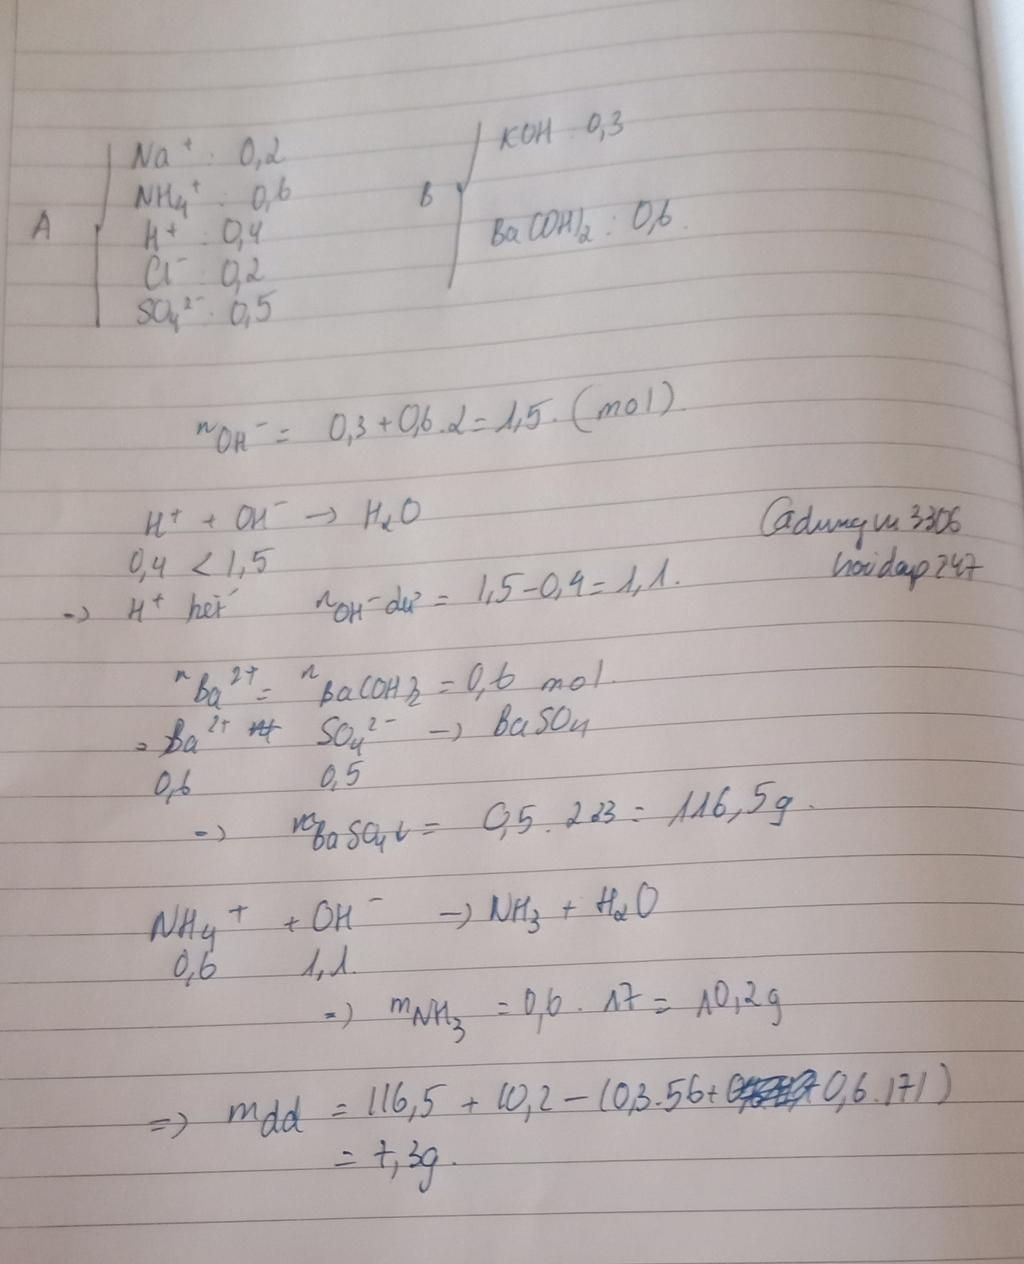 A
Na⁺ : 0,2
NH₄⁺ : 0,6
H⁺ : 0,4
Cl⁻ : 0,2
SO₄²⁻ : 0,5
B
KOH : 0,3
Ba(OH)₂ : 0,6.
nOH⁻ = 0,3 + 0,6.2 = 1,5. (mol).
H⁺ + OH⁻ → H₂O
0,4 < 1,5
→ H⁺ hết nOH⁻ dư = 1,5 - 0,4 = 1,1.
Cadungvu3306
hoidap247
nBa²⁺ = nBa(OH)₂ = 0,6 mol.
Ba²⁺ + SO₄²⁻ → BaSO₄
0,6 0,5
→ mBaSO₄↓ = 0,5 . 233 = 116,5g.
NH₄⁺ + OH⁻ → NH₃ + H₂O
0,6 1,1.
=> mNH₃ = 0,6 . 17 = 10,2g
=> mdd = 116,5 + 10,2 - (0,3.56 + 0,6.171)
= 7,3g.